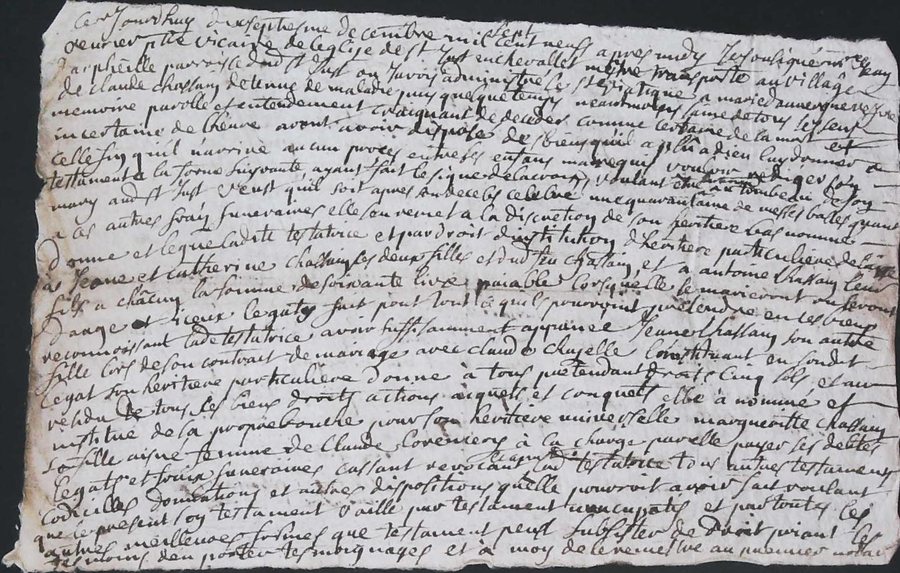 Ce jourdhuy dixseptiesme decembre mil sept cent neuf apres midy Je soubsigné mre Jean
vicaire de leglise de St Just en chevallet me suis transporté au village
parroisse dud St Just ou Javois administré le St viatique a marie
de Claude Chassain detenue de maladie puis quelque temps neantmoings saine de tous ses sens
memoire parolle et entendement craignant de deceder comme certaine de la mort et
incertaine de lheure avant avoir disposé de ses biens quil a plû a dieu luy donner a
celle fin quil narrive aucun proces entre ses enfans ma requis vouloir rediger son
testament a la forme suivante, ayant fait le signe de la croix, voulant au tombeau de son
mary aud St Just veust quil soit apres son deces celebré une quarantaine de messes basses quant
a ses autres frais funeraires elle sen remet a la discretion de son heritiere bas nommée
Donne et legue ladite testatrice et par droit dinstitution dheritiere particuliere
a Jeane et Catherine Chassain ses deux filles et dud feu Chassain, et a antoine Chassain leur
fils a chacun la somme de soixante livres payable lorsquelle se marieront ou seront
dange et iceux legats fait pour tout ce quils pourroient pretendre en ses biens
reconnoissant lade testatrice avoir suffisamment apanée Jeane Chassain son autre
fille lors de son contrat de mariage avec claude Chazelle Constituant en sondit
legat son heritiere particuliere donne a tous pretendant droits cinq sols et au
residu de tous ses biens droits actions aquets et conquets elle a nommé et
institue de sa propre bouche pour son heritiere universelle margueritte Chassain
sa fille aisne femme de Claude a la charge par elle payer ses debtes
legats et frais funeraires cassant revocant lad testatrice tous autres testaments
codicilles donnations et autres dispositions quelle pourroit avoir fait voulant
que le present son testament vaille par testament nuncupatif et par toutes ces
autres meilleures formes que testament peut subsister de droit priant les
tesmoins den porter tesmoignages et a moy de le remestre au premier notaire